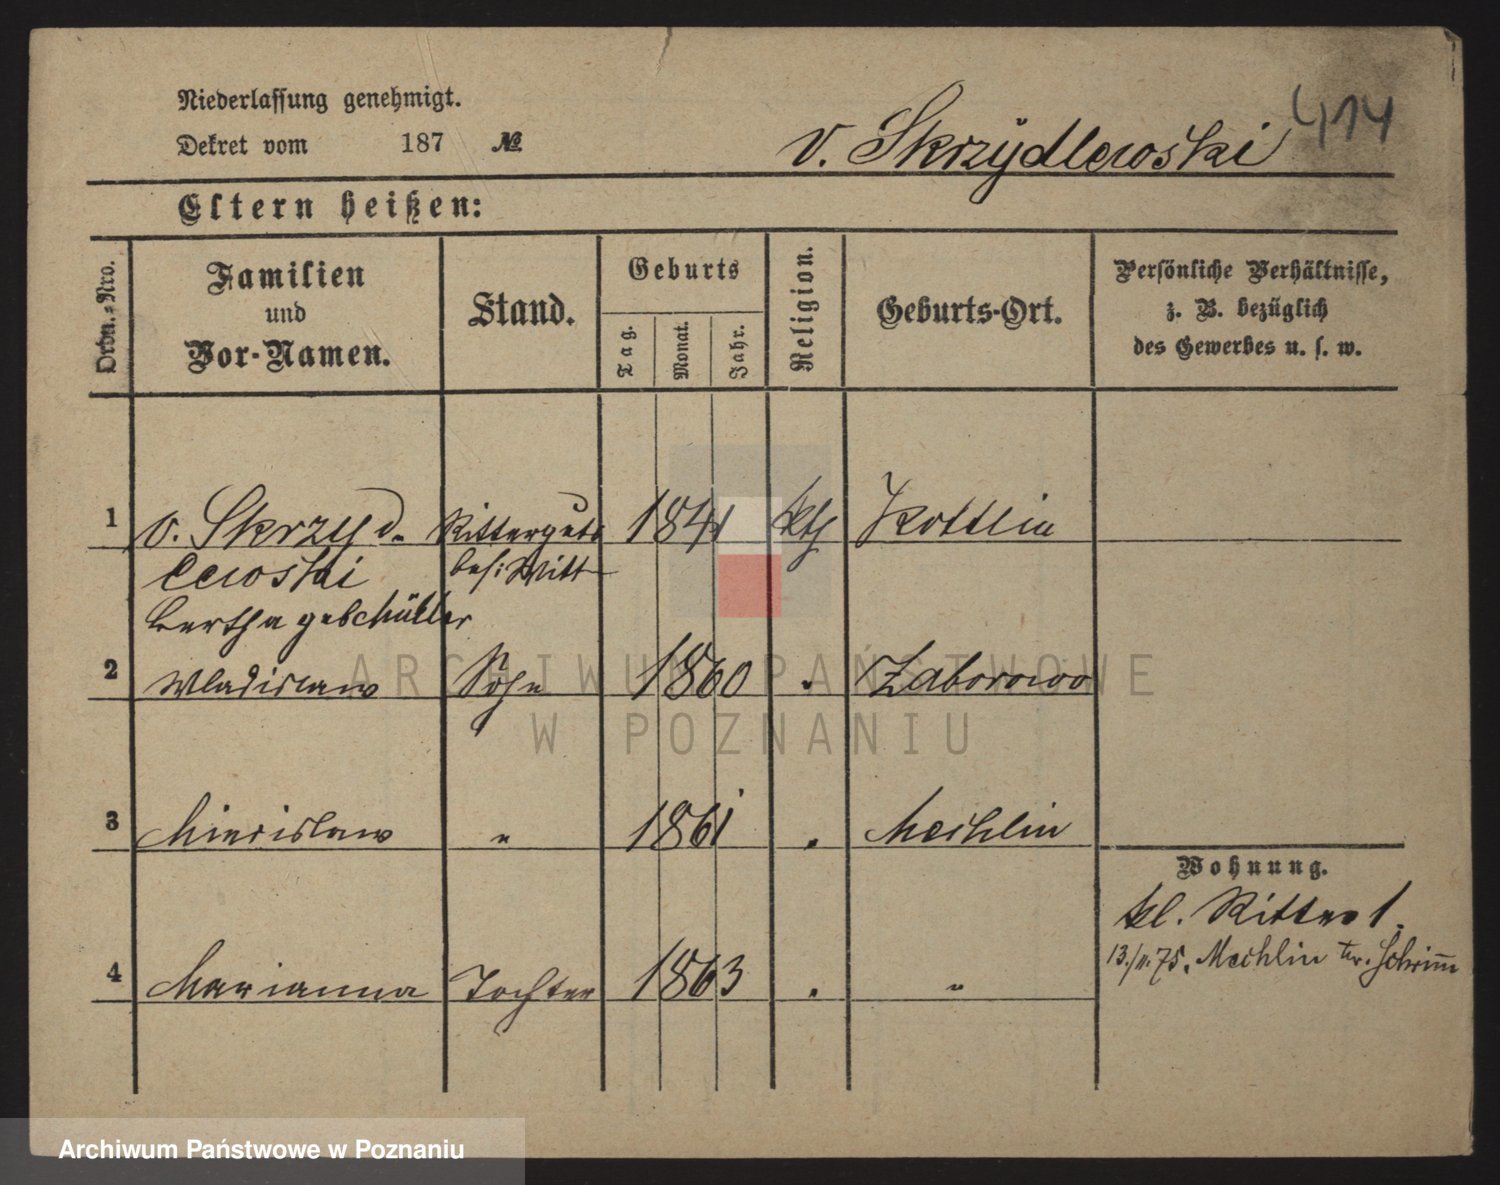 Niederlassung genehmigt.
Dekret vom 187 №
v. Skrzydlewski 414
Eltern heißen:
Ordn.-Nro.
Familien und Vor-Namen.
Stand.
Geburts
Tag. Monat. Jahr.
Religion.
Geburts-Ort.
Persönliche Verhältnisse, z. B. bezüglich des Gewerbes u. s. w.
1 v. Skrzyd- Ritterguts 1841 kth Kottlin
lewski bes: Witt
Bertha geb
2 Wladislaw Sohn 1860 " Zaborowo
3 Miecislaw " 1861 " Mechlin
Wohnung.
kl. Ritterst 1.
13./11.75. Mechlin Kr. Schrimm
4 Marianna Tochter 1863 " "
ARCHIWUM PAŃSTWOWE
W POZNANIU
Archiwum Państwowe w Poznaniu